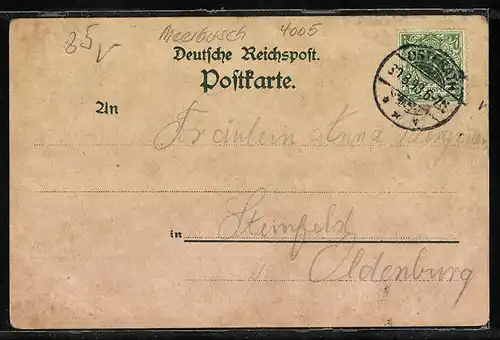 85
Meerbusch 4005
Deutsche Reichspost.
Postkarte.
An
Fräulein Anna
in Steinfeld
Oldenburg